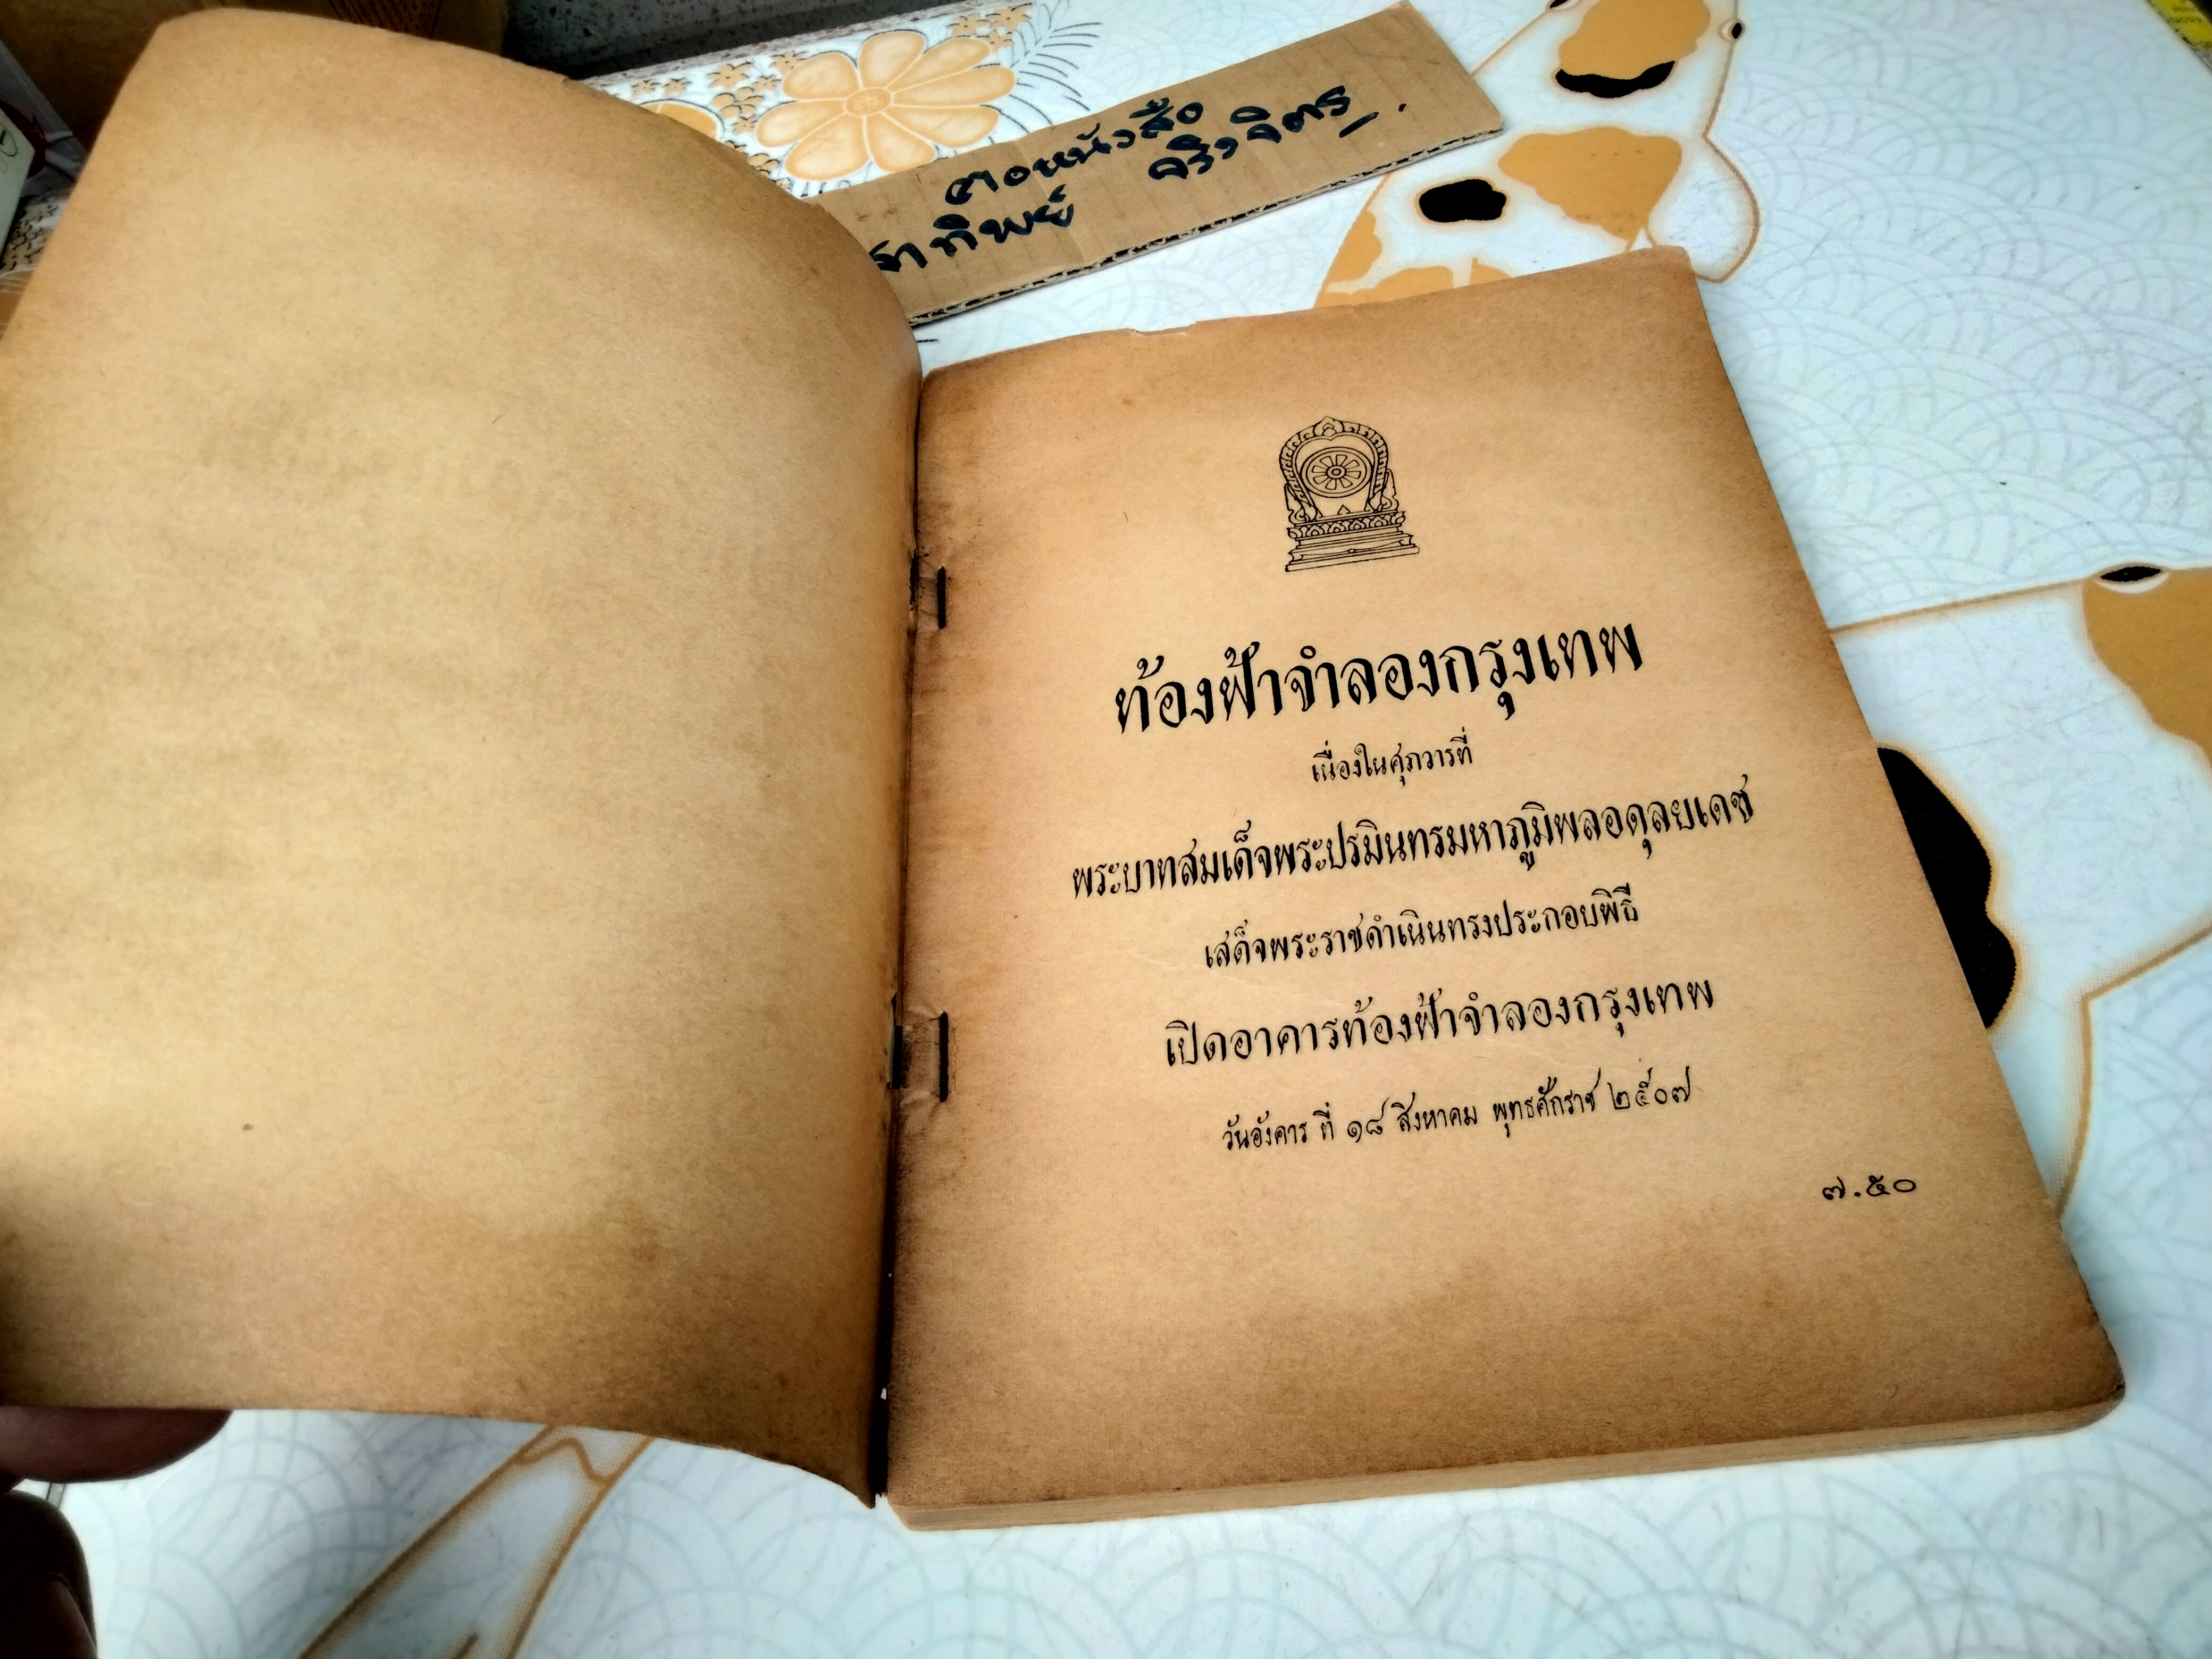 ท้องฟ้าจำลองกรุงเทพ
เนื่องในศุภวารที่
พระบาทสมเด็จพระปรมินทรมหาภูมิพลอดุลยเดช
เสด็จพระราชดำเนินทรงประกอบพิธี
เปิดอาคารท้องฟ้าจำลองกรุงเทพ
วันอังคาร ที่ ๑๘ สิงหาคม พุทธศักราช ๒๕๐๗
๗.๕๐